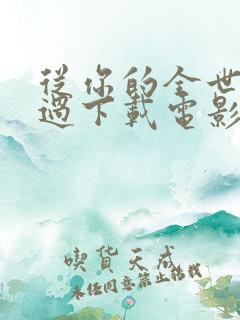 從你的全世
過下載電影
喫貨天成
未经同意禁止转载